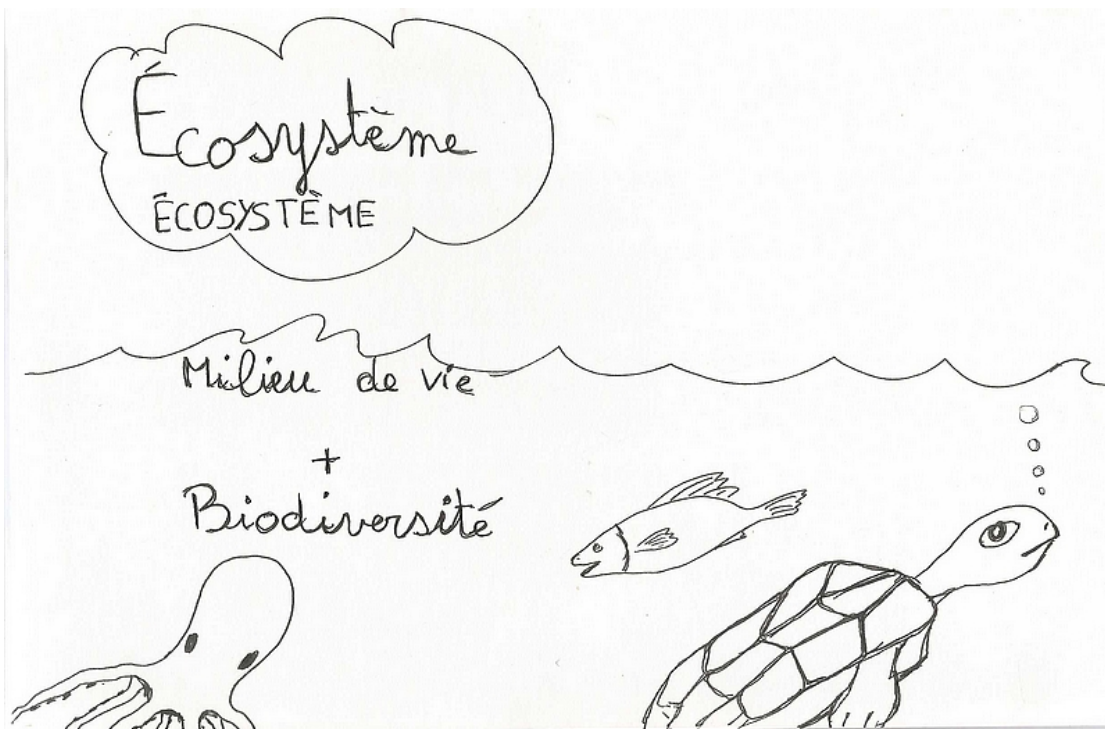 Écosystème
ÉCOSYSTÈME
Milieu de vie
+
Biodiversité